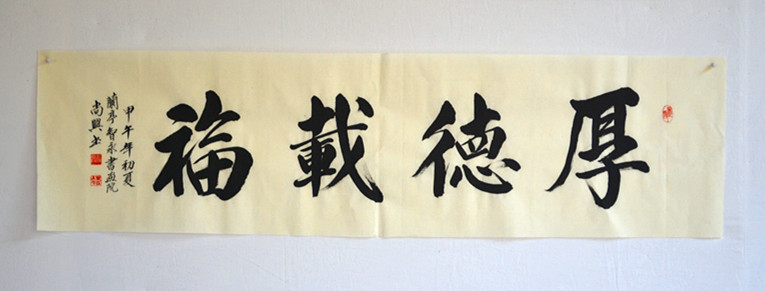 厚德載福
甲午年初夏
蘭亭智永書画院
尚興书